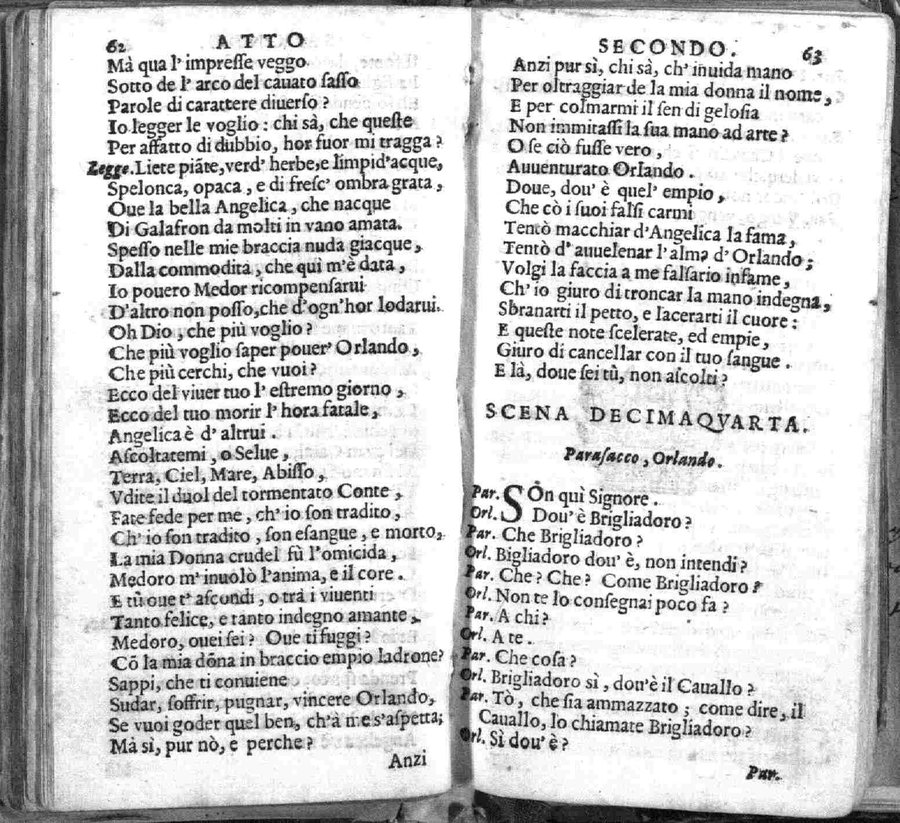 62 ATTO
Mà qua l' impreſſe veggo
Sotto de l' arco del cauato ſaſſo
Parole di carattere diuerſo ?
Io legger le voglio : chi sà, che queſte
Per affatto di dubbio, hor fuor mi tragga ?
Legge. Liete piāte, verd' herbe, e limpid'acque,
Spelonca, opaca, e di freſc' ombra grata,
Oue la bella Angelica, che nacque
Di Galafron da molti in vano amata.
Speſſo nelle mie braccia nuda giacque,
Dalla commodità, che qui m'è data,
Io pouero Medor ricompenſarui
D'altro non poſſo, che d'ogn'hor lodarui.
Oh Dio, che più voglio ?
Che più voglio ſaper pouer' Orlando,
Che più cerchi, che vuoi ?
Ecco del viuer tuo l' eſtremo giorno,
Ecco del tuo morir l' hora fatale,
Angelica è d' altrui.
Aſcoltatemi, o Selue,
Terra, Ciel, Mare, Abiſſo,
Vdite il duol del tormentato Conte,
Fate fede per me, ch' io ſon tradito,
Ch' io ſon tradito, ſon eſangue, e morto,
La mia Donna crudel fù l'omicida,
Medoro m' inuolò l'anima, e il core.
E tù oue t' aſcondi, o trà i viuenti
Tanto felice, e tanto indegno amante,
Medoro, ouei ſei ? Oue ti fuggi ?
Cō la mia dōna in braccio empio ladrone ?
Sappi, che ti conuiene
Sudar, ſoffrir, pugnar, vincere Orlando,
Se vuoi goder quel ben, ch'à me s'aſpetta;
Mà sì, pur nò, e perche ?
Anzi
SECONDO. 63
Anzi pur sì, chi sà, ch' inuida mano
Per oltraggiar de la mia donna il nome,
E per colmarmi il ſen di geloſia
Non immitaſſi la ſua mano ad arte ?
O ſe ciò fuſſe vero,
Auuenturato Orlando.
Doue, dou' è quel' empio,
Che cò i ſuoi falſi carmi
Tentò macchiar d'Angelica la fama,
Tentò d' auuelenar l'alma d'Orlando;
Volgi la faccia a me falſario infame,
Ch' io giuro di troncar la mano indegna,
Sbranarti il petto, e lacerarti il cuore :
E queſte note ſcelerate, ed empie,
Giuro di cancellar con il tuo ſangue.
E là, doue ſei tù, non aſcolti ?
SCENA DECIMAQVARTA.
Paraſacco, Orlando.
Par. SOn quì Signore.
Orl. Dou' è Brigliadoro ?
Par. Che Brigliadoro ?
Orl. Bigliadoro dou' è, non intendi ?
Par. Che ? Che ? Come Brigliadoro ?
Orl. Non te lo conſegnai poco fa ?
Par. A chi ?
Orl. A te.
Par. Che coſa ?
Orl. Brigliadoro sì, dou'è il Cauallo ?
Par. Tò, che ſia ammazzato ; come dire, il
Cauallo, lo chiamate Brigliadoro ?
Orl. Sì dou' è ?
Par.